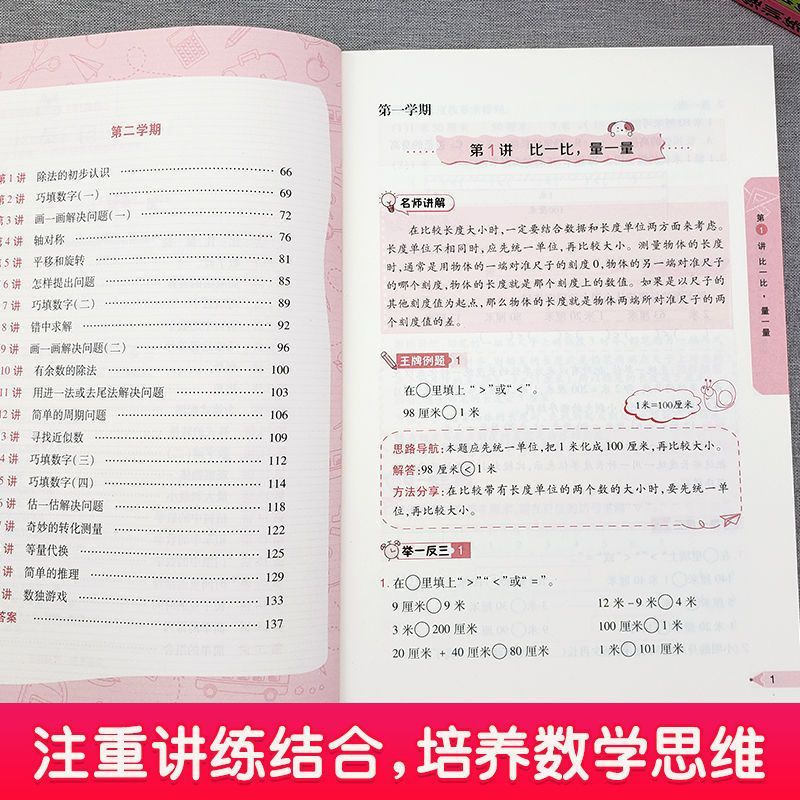 第二学期
第1讲 除法的初步认识 66
第2讲 巧填数字(一) 69
第3讲 画一画解决问题(一) 72
第4讲 轴对称 76
第5讲 平移和旋转 81
第6讲 怎样提出问题 85
第7讲 巧填数字(二) 89
第8讲 错中求解 92
第9讲 画一画解决问题(二) 96
10讲 有余数的除法 100
11讲 用进一法或去尾法解决问题 103
12讲 简单的周期问题 106
13讲 寻找近似数 109
4讲 巧填数字(三) 112
5讲 巧填数字(四) 114
6讲 估一估解决问题 118
7讲 奇妙的转化测量 122
讲 等量代换 125
讲 简单的推理 129
讲 数独游戏 133
答案 137
第一学期
第1讲 比一比,量一量
名师讲解
在比较长度大小时,一定要结合数据和长度单位两方面来考虑。
长度单位不相同时,应先统一单位,再比较大小。测量物体的长度
时,通常是用物体的一端对准尺子的刻度0,物体的另一端对准尺子
的哪个刻度,物体的长度就是那个刻度上的数值。如果是以尺子的
其他刻度为起点,那么物体的长度就是物体两端所对准尺子的两
个刻度值的差。
王牌例题1
在○里填上“>”或“<”。
98厘米○1米
1米=100厘米
思路导航:本题应先统一单位,把1米化成100厘米,再比较大小。
解答:98厘米<1米
方法分享:在比较带有长度单位的两个数的大小时,要先统一单
位,再比较大小。
举一反三1
1. 在○里填上“>”“<”或“=”。
9厘米○9米 12米-9米○4米
3米○200厘米 100厘米○1米
20厘米+40厘米○80厘米 1米○101厘米
第1讲 比一比,量一量
1
注重讲练结合,培养数学思维